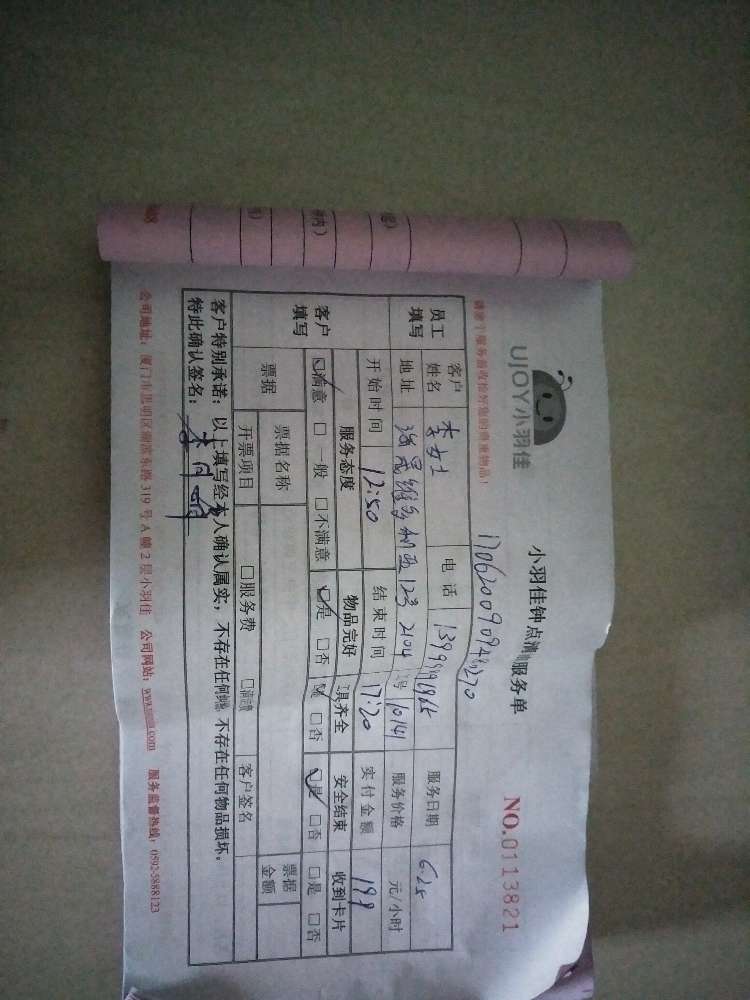 UJOY小羽佳
小羽佳钟点清洁服务单
NO.0113821
请您于服务前收拾好您的贵重物品！
员工填写
客户姓名 李女士 电话 服务日期 6.25
地址 123 2104 10141 服务价格 元/小时
开始时间 12:50 结束时间 17:20 实付金额 199
客户填写
服务态度 物品完好 工具齐全 安全结束 收到卡片
☑满意 □一般 □不满意 ☑是 □否 ☑是 □否 ☑是 □否 □是 □否
票据 票据名称 票据金额
开票项目 □服务费 □清洁费 客户签名
客户特别承诺：以上填写经本人确认属实，不存在任何 不存在任何物品损坏。
特此确认签名：
公司地址：厦门市思明区湖滨东路319号A幢2层小羽佳 公司网站： 服务监督热线：0592-5888123